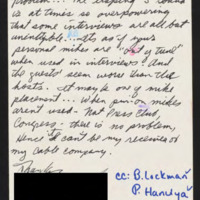 problem... The
is at times so overpowering
that some interviews are all but
unintelligible. It's as if your
personal mikes are "       "
when used in interviews! And
the guests' seem worse than the
hosts. It may be one of mike
placement... When pin-on mikes
aren't used - Nat Press Club,
Congress - there is no problem,
Hence it can't be my receiver or
my cable company.
Thanks
cc: B. Lockman
P. Handyá